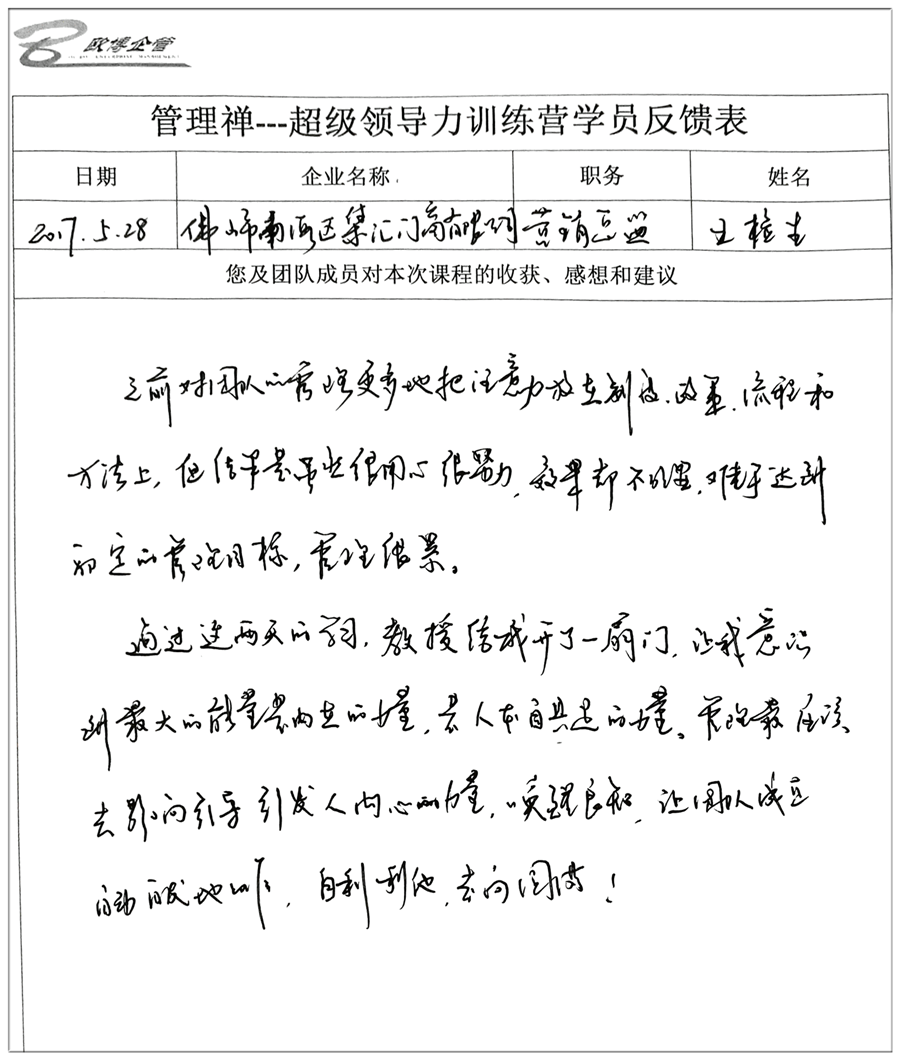 欧博企管
管理禅---超级领导力训练营学员反馈表
日期 企业名称 职务 姓名
2017.5.28 佛山市南海区集汇门窗有限公司 营销总监 王 生
您及团队成员对本次课程的收获、感想和建议
之前对团队的管理更多地把注意力放在制度、政策、流程和
方法上，但结果是虽然很用心很努力，效果却不明显，难于达到
制定的管理目标，管理结果。
通过这两天的学习，教授给我开了一扇门，让我意识
到最大的能量是内在的力量，是人本自具足的力量。管理最应该
去影响引导引发人内心的力量，唤醒良知，让团队成员
自动自发地工作，自利利他，去向圆满！